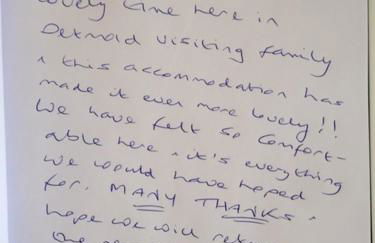 lovely time here in
Detmold visiting family
& this accommodation has
made it even more lovely!!
We have felt so comfort-
able here & it's everything
we would have hoped
for. MANY THANKS &
hope we will